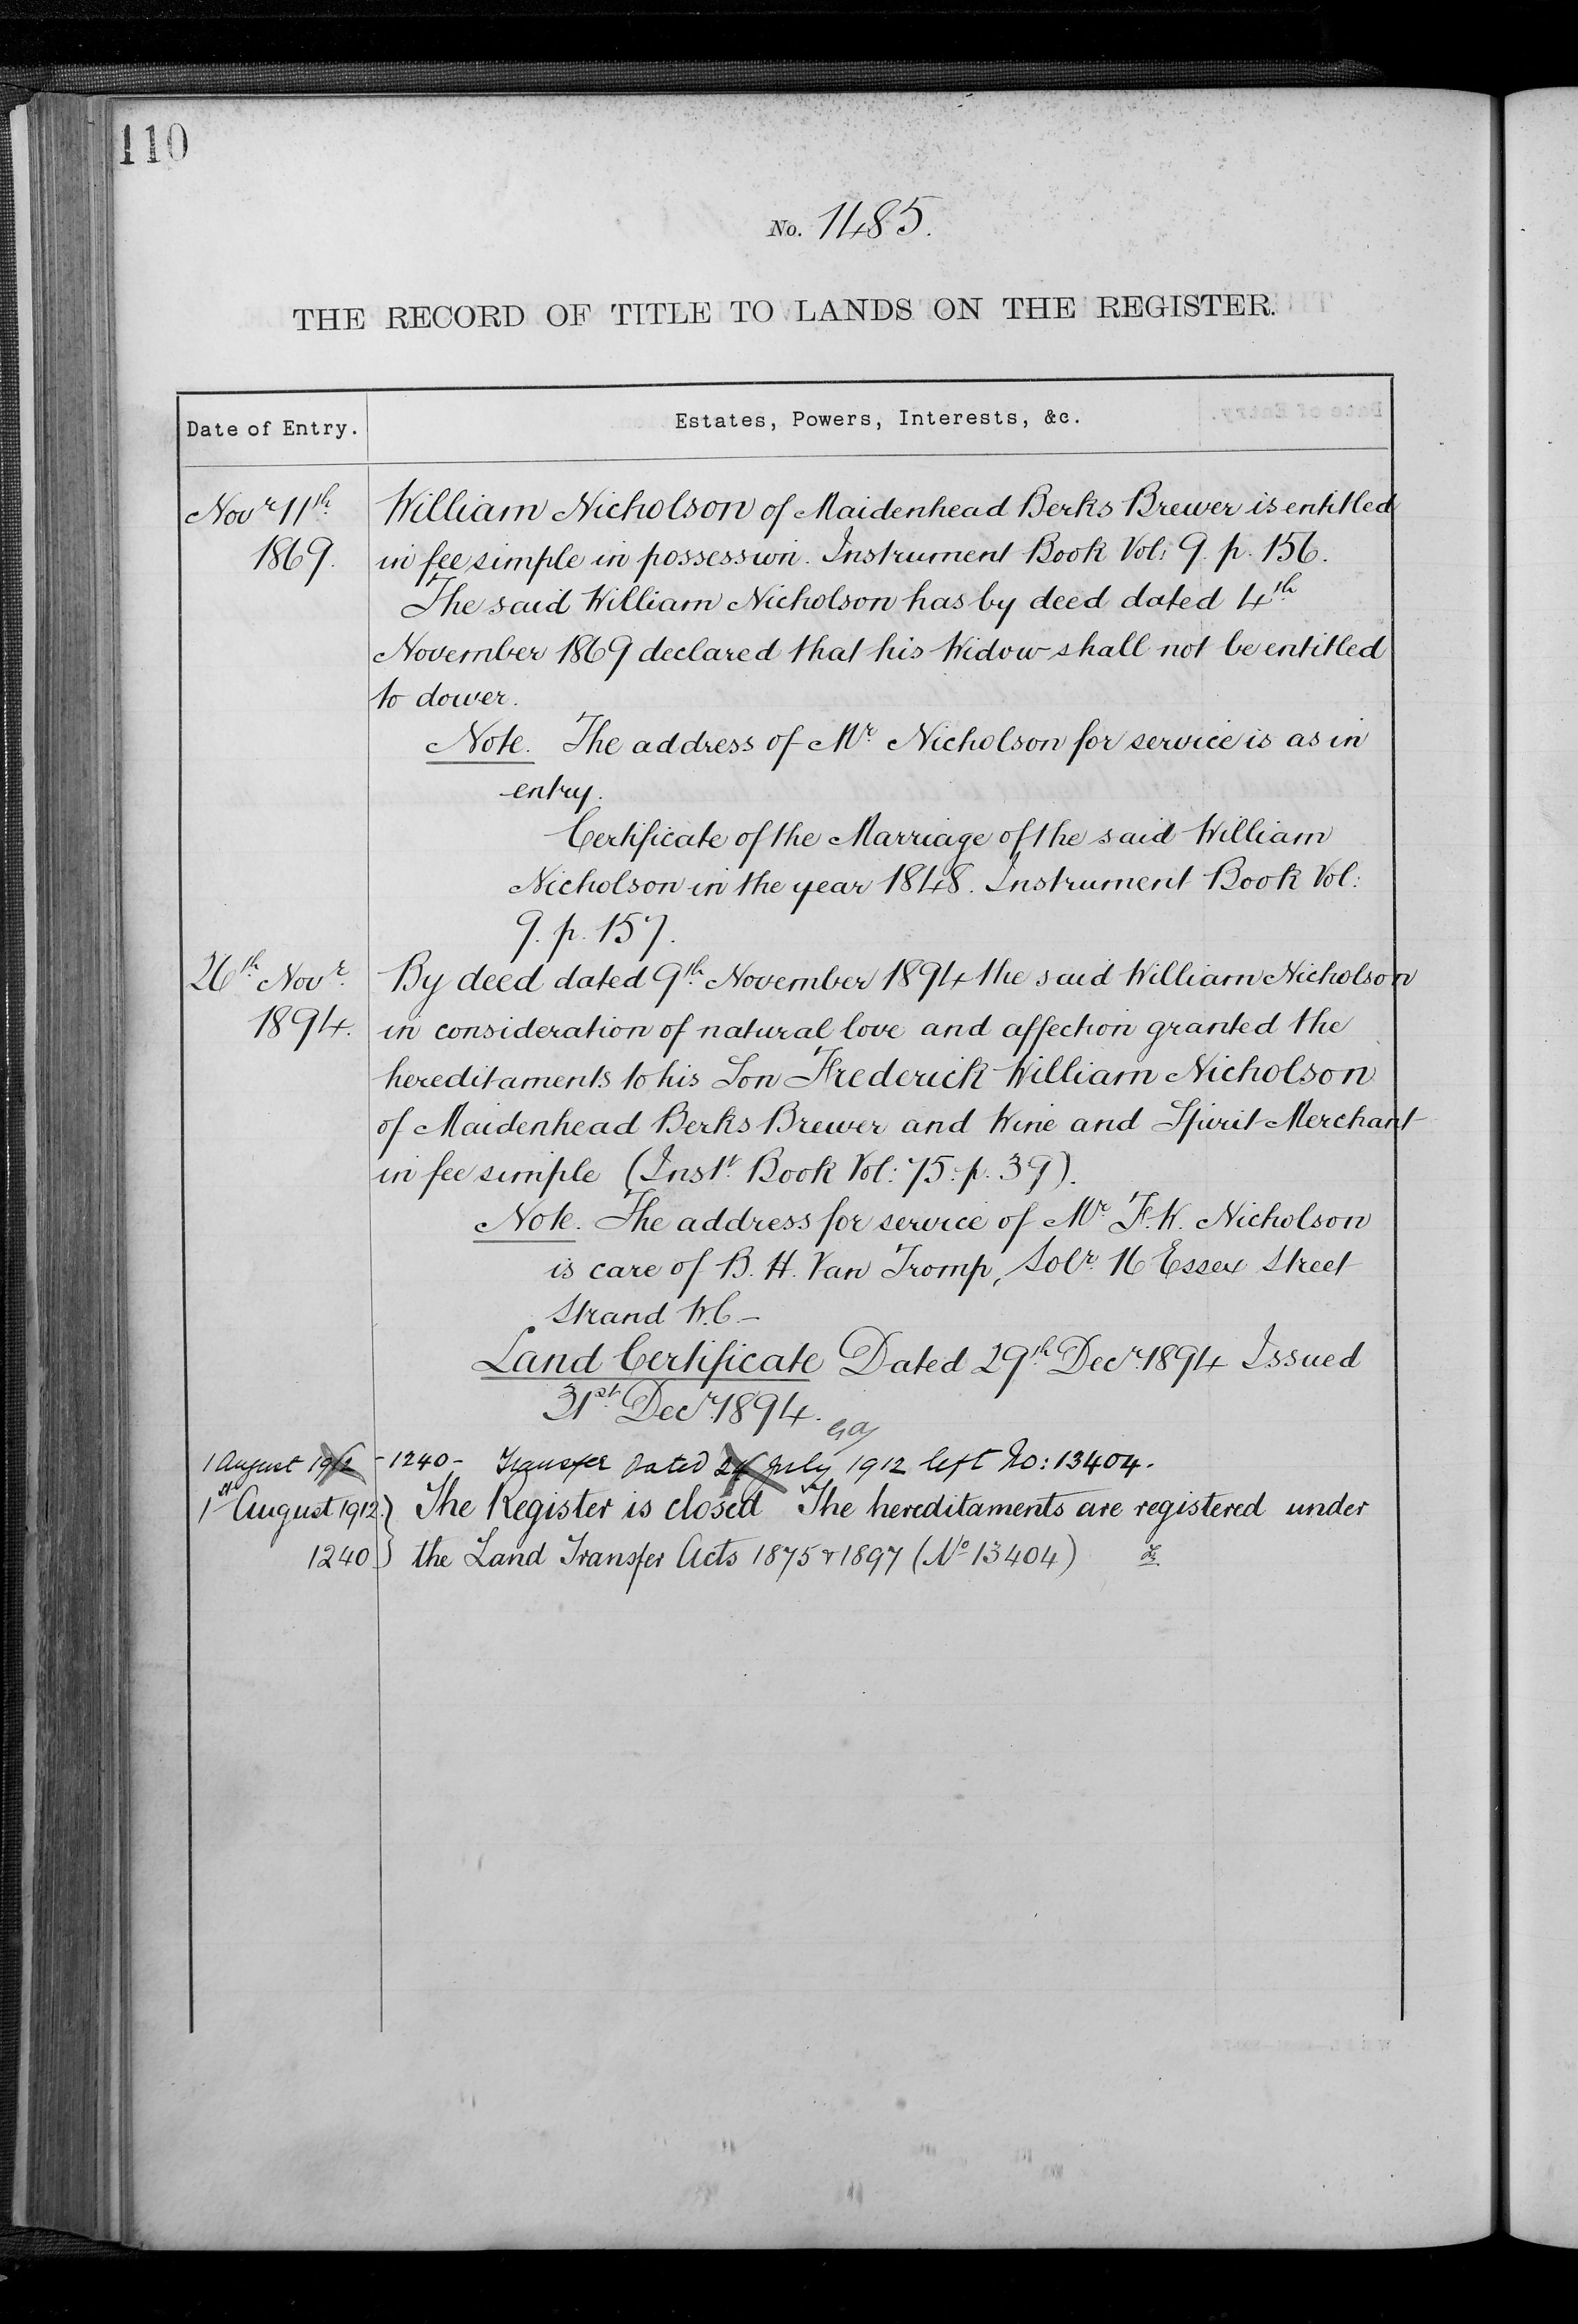 110
No. 1485.
THE RECORD OF TITLE TO LANDS ON THE REGISTER.
Date of Entry.
Estates, Powers, Interests, &c.
Novr 11th 1869.
William Nicholson of Maidenhead Berks Brewer is entitled
in fee simple in possession. Instrument Book Vol: 9. p. 156.
The said William Nicholson has by deed dated 4th
November 1869 declared that his Widow shall not be entitled
to dower.
Note. The address of Mr Nicholson for service is as in
entry.
Certificate of the Marriage of the said William
Nicholson in the year 1848. Instrument Book Vol:
9. p. 157.
26th Novr 1894.
By deed dated 9th November 1894 the said William Nicholson
in consideration of natural love and affection granted the
hereditaments to his Son Frederick William Nicholson
of Maidenhead Berks Brewer and Wine and Spirit Merchant
in fee simple (Inst. Book Vol: 75. p. 39).
Note. The address for service of Mr F.W. Nicholson
is care of B. H. Van Tromp, Solr. 16 Essex Street
Strand W.C. –
Land Certificate Dated 29th Decr. 1894 Issued
31st Decr. 1894.
1 August 1912 - 1240 - Transfer dated 24 July 1912 left No: 13404.
1st August 1912. } The Register is closed The hereditaments are registered under
1240 } the Land Transfer Acts 1875 & 1897 (No 13404)